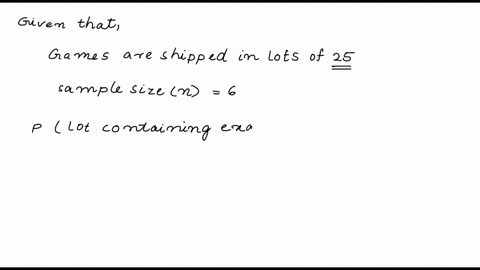 Given that,
Games are shipped in lots of 25
sample size (n) = 6
P ( lot containing exa